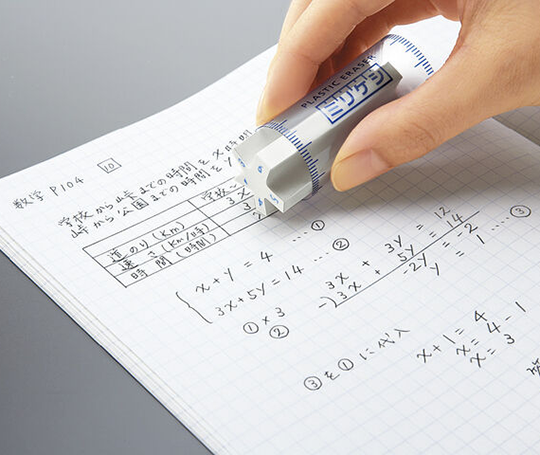 PLASTIC ERASER
ミリケシ
数学 P104 10
学校から峠までの時間を x 時間
峠から公園までの時間を y
学校〜
道のり(Km) 3x
速 さ(Km/時) 3
時 間(時間)
x + y = 4 … ①
3x + 5y = 14 … ②
① × 3
②
3x + 3y = 12
-) 3x + 5y = 14
-2y = -2
y = 1 … ③
③ を ① に代入
x + 1 = 4
x = 4 - 1
x = 3